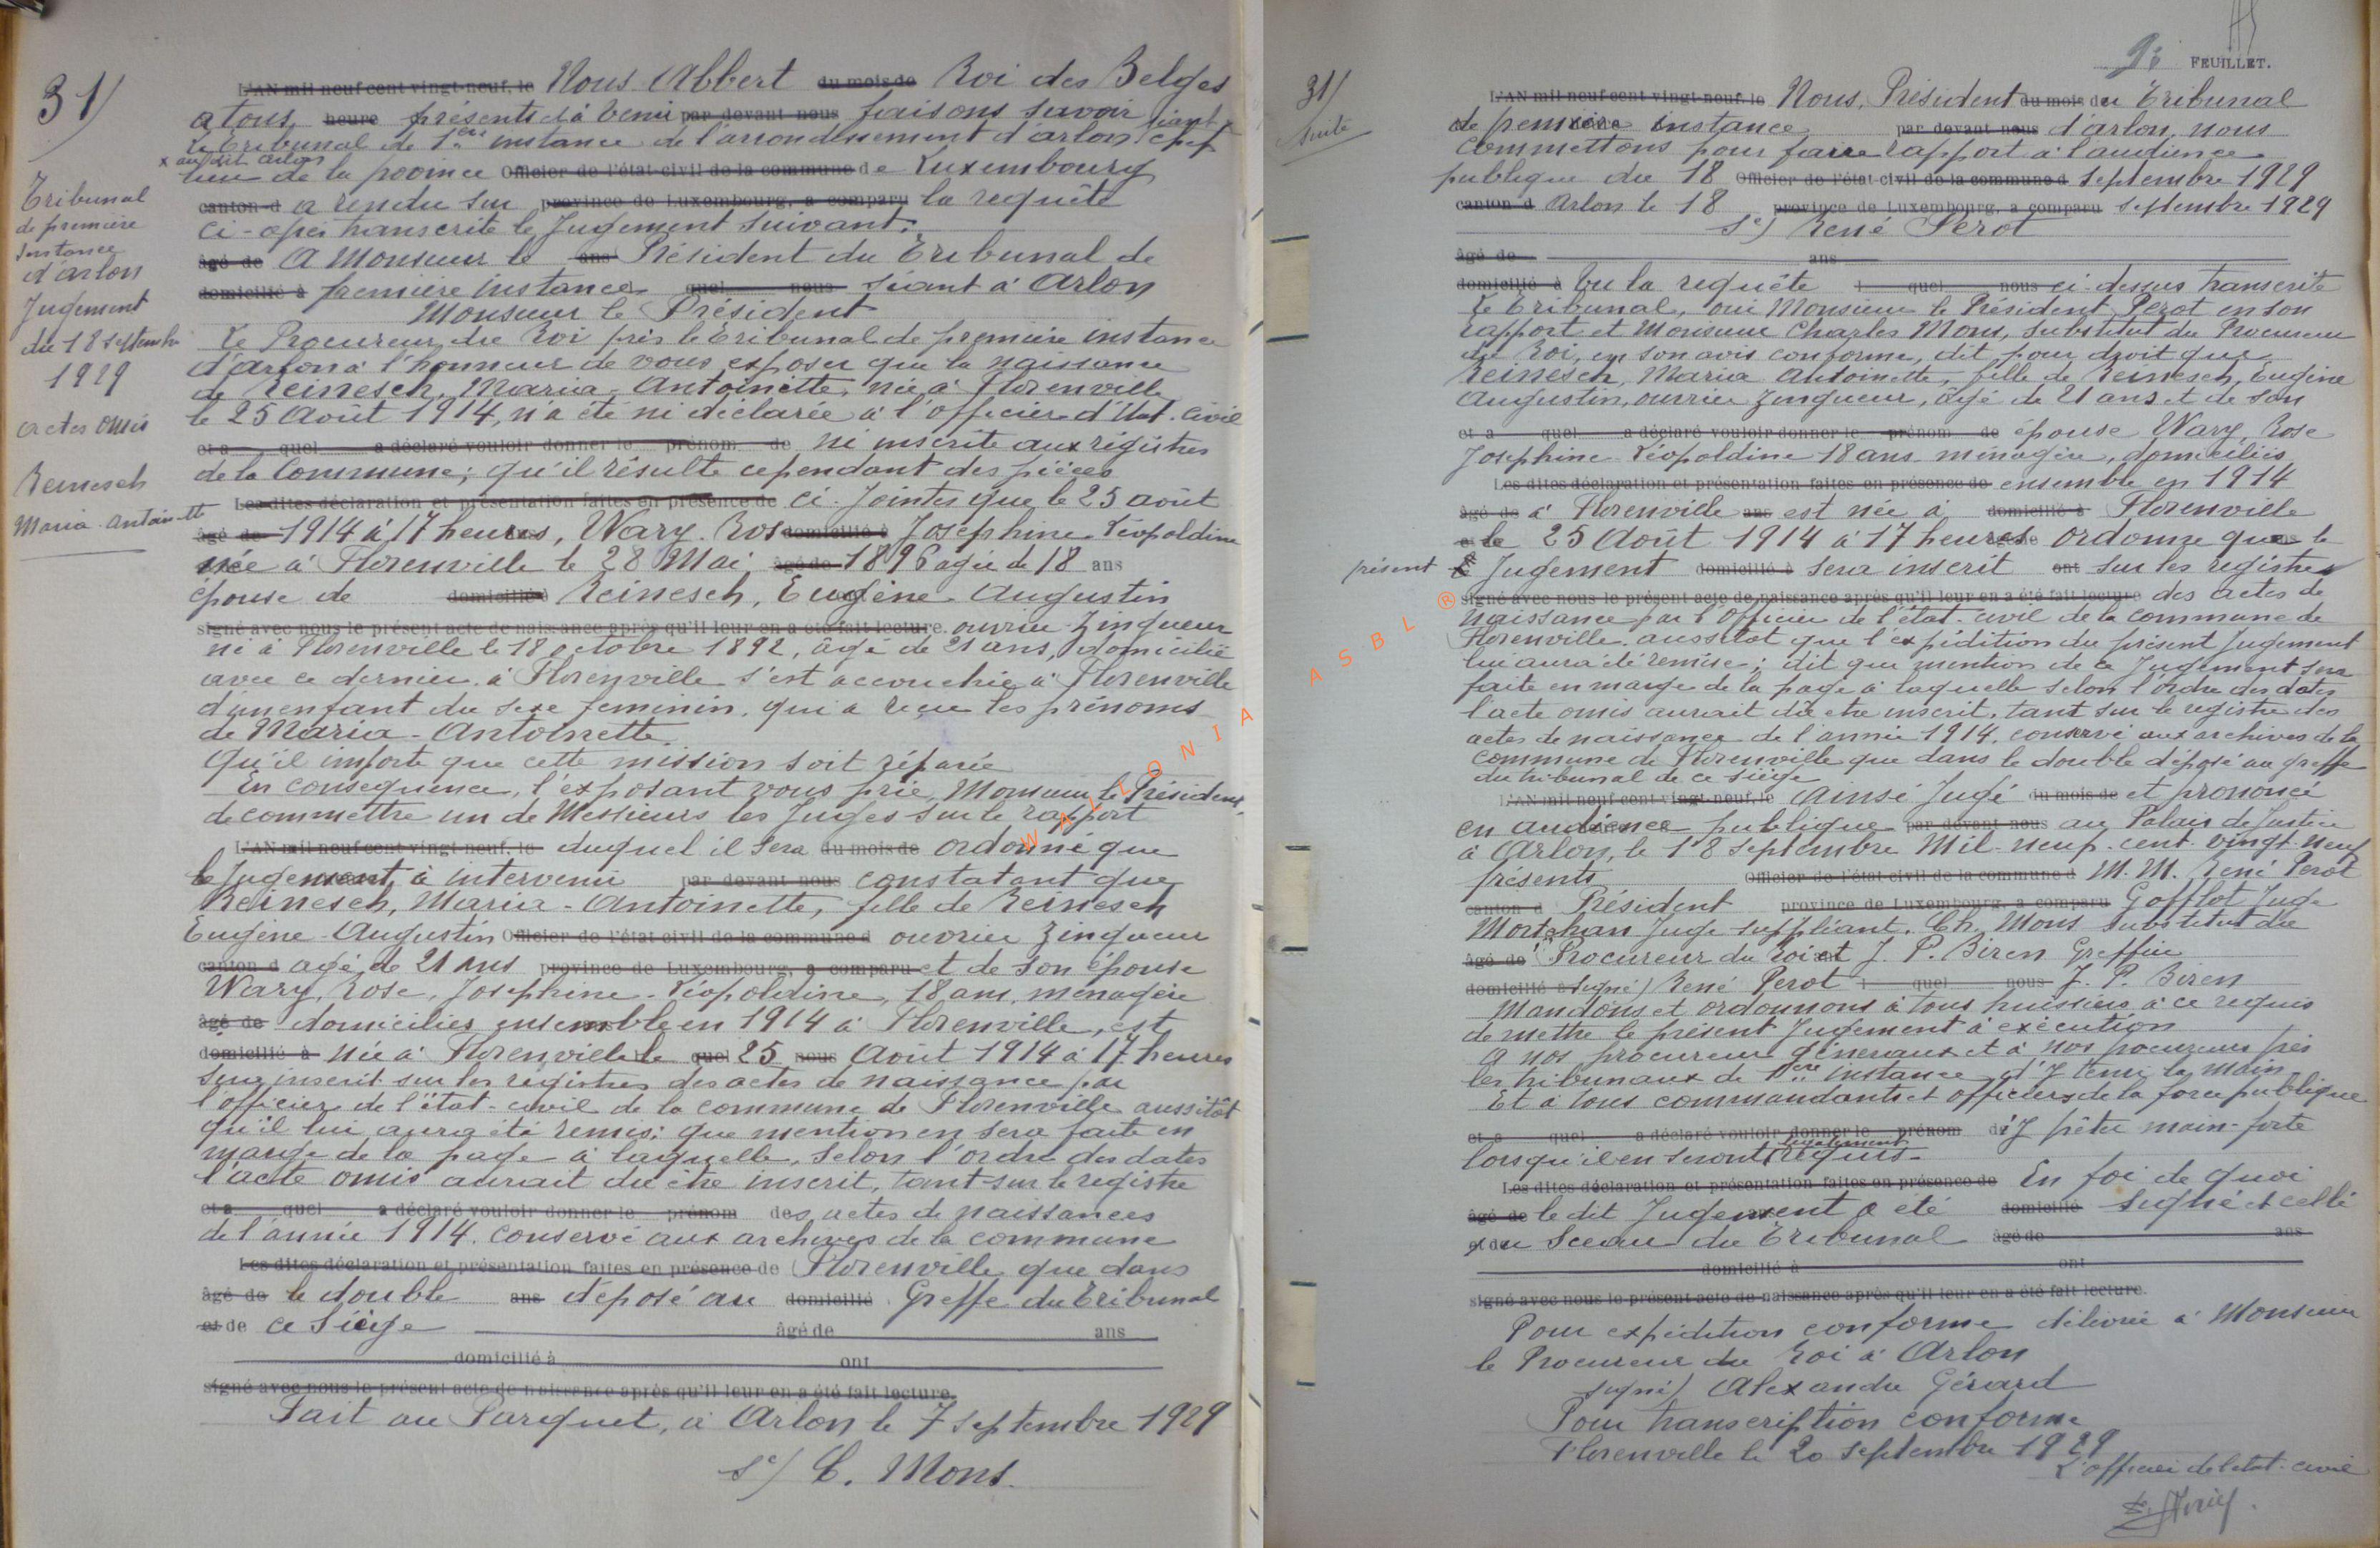 31/
Tribunal
de première
Instance
d'arlon
Jugement
du 18 septembre
1929
actes omis
Reinesch
Maria-Antoinette
L'AN mil neuf cent vingt-neuf, le Nous Albert du mois de Roi des Belges
a tous, heure présents et à venir par devant nous faisons savoir
Le Tribunal de 1ère instance de l'arrondissement d'arlon chef
x audit arlon
lieu de la province Officier de l'état civil de la commune de Luxembourg
canton d a rendu sur province de Luxembourg, a comparu la requête
ci-après transcrite le Jugement suivant:
âgé de A Monsieur le ans Président du Tribunal de
domicilié à première instance quel nous Séant à Arlon
Monsieur le Président
Le Procureur du Roi près le Tribunal de première instance
d'arlon à l'honneur de vous exposer que la naissance
de Reinesch, Maria-Antoinette, née à Florenville
le 25 Août 1914, n'a été ni déclarée à l'officier d'Etat-Civil
et a quel a déclaré vouloir donner le prénom de ni inscrite aux registres
de la Commune; qu'il résulte cependant des pièces
Les dites déclaration et présentation faites en présence de ci-jointes que le 25 août
âgé de 1914 à 17 heures, Wary. Ros domicilié à Joséphine-Léopoldine
née à Florenville le 28 Mai, âgé de 1896 agée de 18 ans
épouse de domicilié à Reinesch, Eugène-Augustin
signé avec nous le présent acte de naissance après qu'il leur en a été fait lecture. ouvrier zingueur
né à Florenville le 18 octobre 1892, âgé de 21 ans, domicilié
avec ce dernier à Florenville s'est accouchée à Florenville
d'un enfant du sexe feminin, qui a reçu les prénoms
de Maria-Antoinette.
Qu'il importe que cette mission soit réparée
En consequence, l'exposant vous prie, Monsieur le Président,
de commettre un de Messieurs les Juges sur le rapport
L'AN mil neuf cent vingt-neuf, le duquel il sera du mois de ordonné que
le Jugement à intervenir par devant nous constatant que
Reinesch, Maria-Antoinette, fille de Reinesch
Eugène-Augustin Officier de l'état civil de la commune d ouvrier zingueur
canton d agé de 21 ans province de Luxembourg, a comparu et de son épouse
Wary, Rose, Josephine-Léopoldine, 18 ans, ménagère
âgé de domiciliés ensemble en 1914 à Florenville, est
domicilié à née à Florenville le quel 25 nous Août 1914 à 17 heures
sera inscrit sur les registres des actes de naissance par
l'officier de l'état-civil de la commune de Florenville aussitôt
qu'il lui aura été remis; que mention en sera faite en
marge de la page à laquelle, selon l'ordre des dates
l'acte omis aurait du être inscrit, tant sur le registre
et a quel a déclaré vouloir donner le prénom des actes de naissances
de l'année 1914. conservé aux archives de la commune
Les dites déclaration et présentation faites en présence de Florenville que dans
âgé de le double ans déposé au domicilié Greffe du Tribunal
et de ce Siège âgé de ans
domicilié à ont
signé avec nous le présent acte de naissance après qu'il leur en a été fait lecture.
Fait au Parquet, à Arlon le 7 septembre 1929
Sé/ C. Mons.
FEUILLET.
31/
Suite
L'AN mil neuf cent vingt-neuf, le Nous, Président du mois du Tribunal
de première instance par devant nous d'arlon, nous
commettons pour faire rapport à l'audience
publique du 18 Officier de l'état-civil de la commune d septembre 1929
canton d Arlon le 18 province de Luxembourg, a comparu septembre 1929
Sé/ René Perot
âgé de ans
domicilié à Vu la requête quel nous ci-dessus transcrite
Le Tribunal, oui Monsieur le Président Perot en son
rapport et Monsieur Charles Mons, substitut du Procureur
du Roi, en son avis conforme, dit pour droit que
Reinesch, Maria Antoinette, fille de Reinesch, Eugène
Augustin, ouvrier zingueur, âgé de 21 ans et de son
et a quel a déclaré vouloir donner le prénom de épouse Wary, Rose
Josephine-Léopoldine 18 ans ménagère, domiciliés
Les dites déclaration et présentation faites en présence de ensemble en 1914
âgé de à Florenville ans est née à domicilié à Florenville
et le 25 Août 1914 à 17 heures âgé de ordonne que le
présent Jugement domicilié à sera inscrit ont sur les registres
signé avec nous le présent acte de naissance après qu'il leur en a été fait lecture des actes de
naissance par l'Officier de l'état-civil de la commune de
Florenville aussitôt que l'expédition du présent Jugement
lui aura été remise; dit que mention de ce Jugement sera
faite en marge de la page à laquelle selon l'ordre des dates
l'acte omis aurait dû etre inscrit, tant sur le registre des
actes de naissance de l'année 1914, conservé aux archives de la
commune de Florenville que dans le double déposé au greffe
du tribunal de ce siège
L'AN mil neuf cent vingt-neuf, le Ainsi Jugé du mois de et prononcé
en audience publique par devant nous au Palais de Justice
à Arlon, le 18 septembre Mil-neuf-cent vingt-neuf
présents Officier de l'état-civil de la commune d M.M. René Perot
canton d Président province de Luxembourg, a comparu Gofflot Juge
Mortehan Juge suppléant. Ch. Mons Substitut du
âgé de Procureur du Roi et J. P. Biren Greffier
domicilié à signé) René Perot quel nous J. P. Biren
Mandons et ordonnons à tous huissiers à ce requis
de mettre le présent Jugement à exécution
A nos procureurs généraux et à nos procureurs près
les tribunaux de 1ère instance d'y tenir la main
Et à tous commandants et officiers de la force publique
et a quel a déclaré vouloir donner le prénom d'y prêter main-forte
légalement
lorsqu'il en seront requis.
Les dites déclaration et présentation faites en présence de En foi de quoi
âgé de le dit Jugement a été domicilié signé et cellé
et du Sceau du Tribunal âgé de ans
domicilié à ont
signé avec nous le présent acte de naissance après qu'il leur en a été fait lecture.
Pour expédition conforme délivrée à Monsieur
le Procureur du Roi à Arlon
signé) Alexandre Gérard
Pour transcription conforme
Florenville le 20 septembre 1929
L'officier de l'etat-civil
WALLONIA ASBL ®